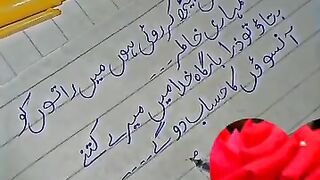 کر روتی ہوں میں راتوں کو
تمہاری خاطر ----
بتاؤ تو ذرا بارگاہ خدا میں میرے کتنے
آنسوؤں کا حساب دو گے ----